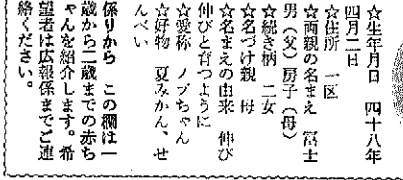 ☆生年月日　四十八年
四月二日
☆住所　一区
☆両親の名まえ　冨士
男（父）房子（母）
☆続き柄　二女
☆名づけ親　母
☆名まえの由来　伸び
伸びと育つように
☆愛称　ノブちゃん
☆好物　夏みかん、せ
んべい
係りから　この欄は一
歳から二歳までの赤ち
ゃんを紹介します。希
望者は広報係までご連
絡ください。